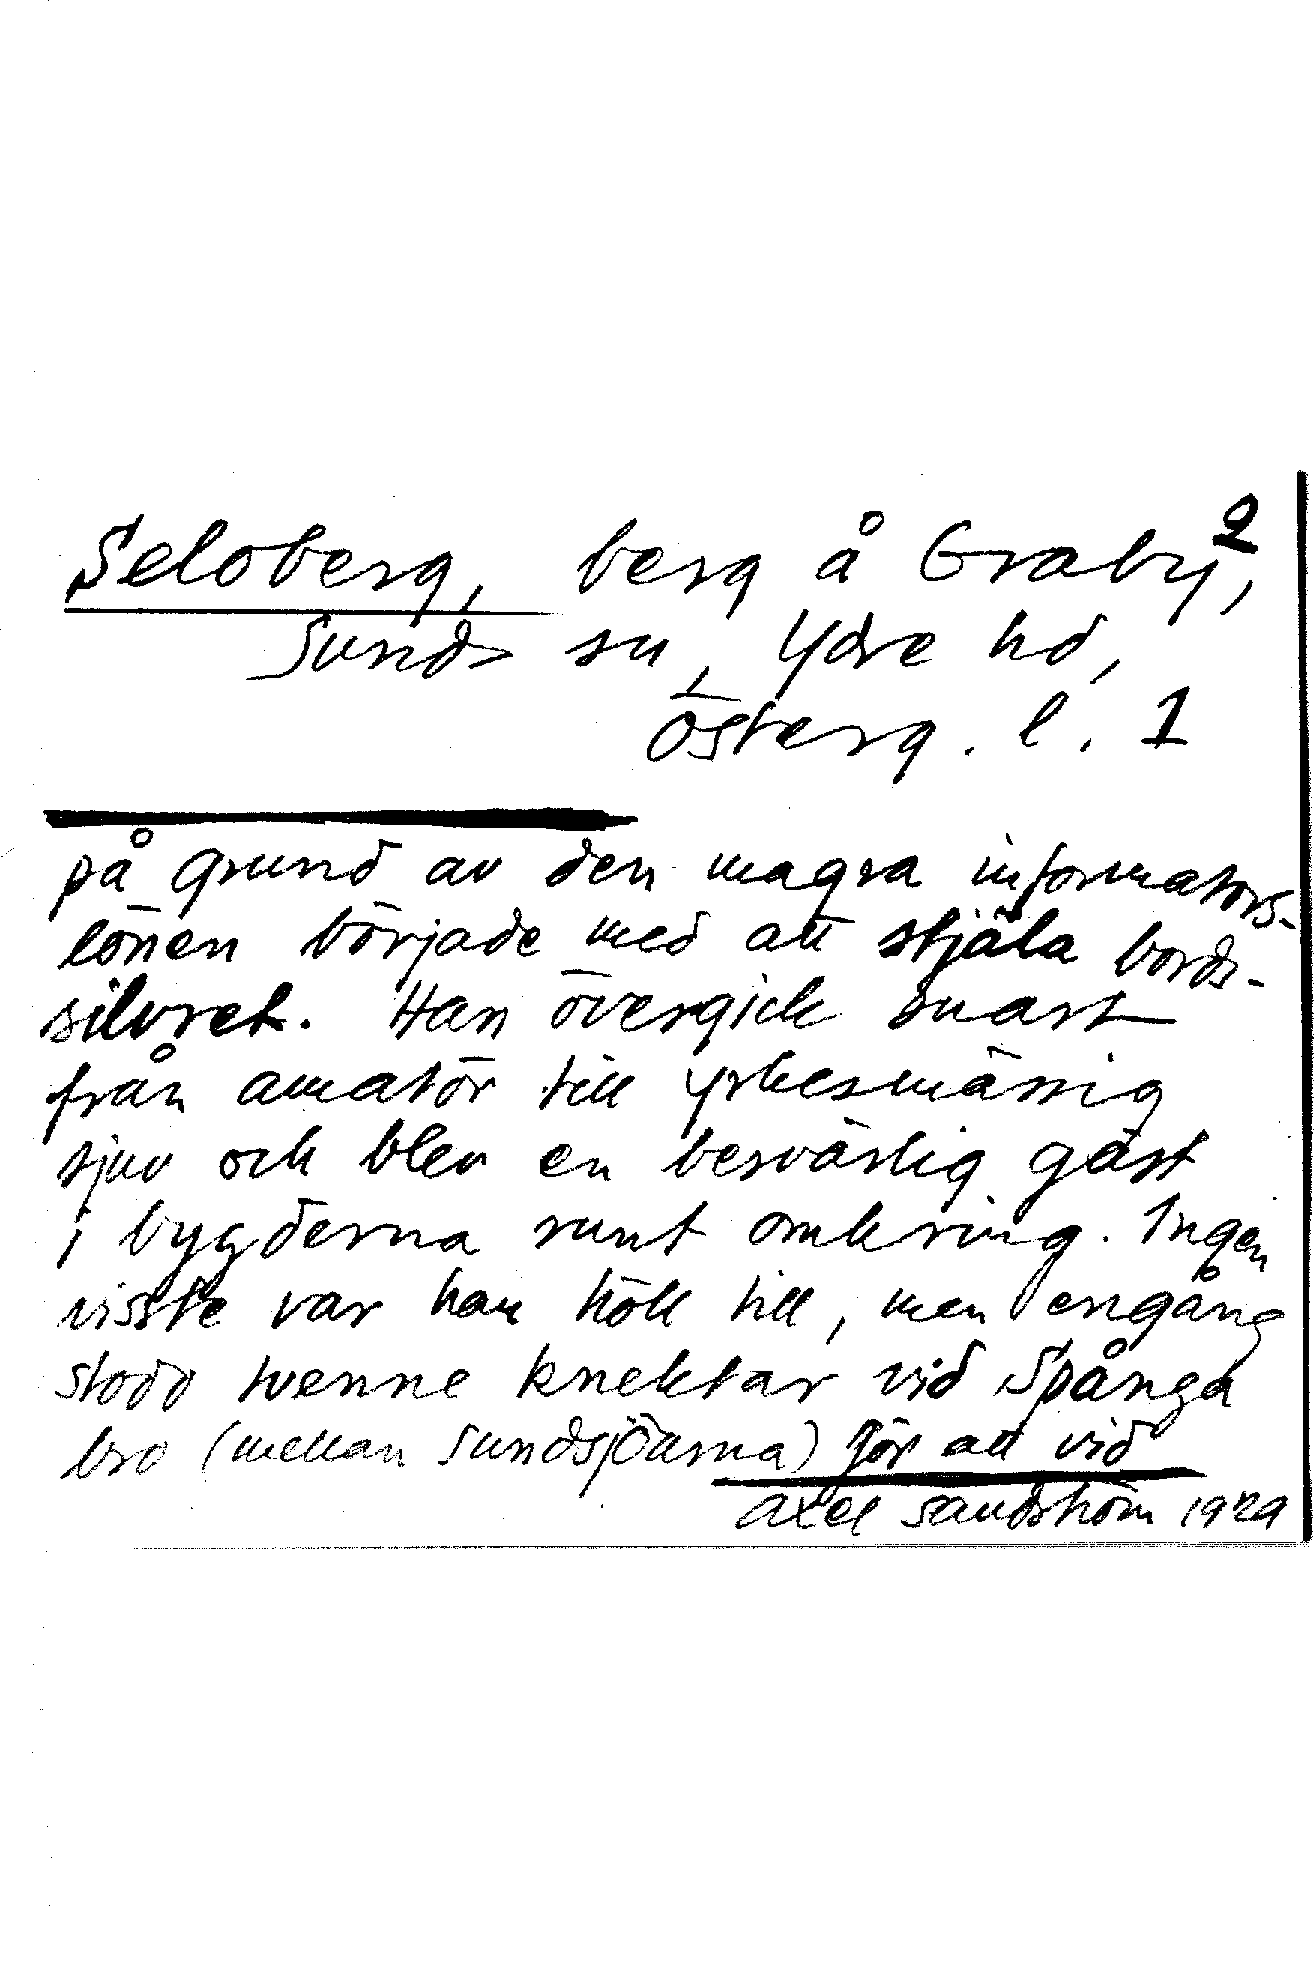 Seloberg, berg å Graby, 2
Sunds sn, Ydre hd,
Österg. l. 1
på grund av den magra informators-
lönen började med att stjäla bords-
silvret. Han övergick snart
från amatör till yrkesmässig
tjuv och blev en besvärlig gäst
i bygderna runt omkring. Ingen
visste var han höll till, men engång
stodo tvenne knektar vid Spånga
bro (mellan Sundsjöarna) för att vid
Axel Sandström 1929